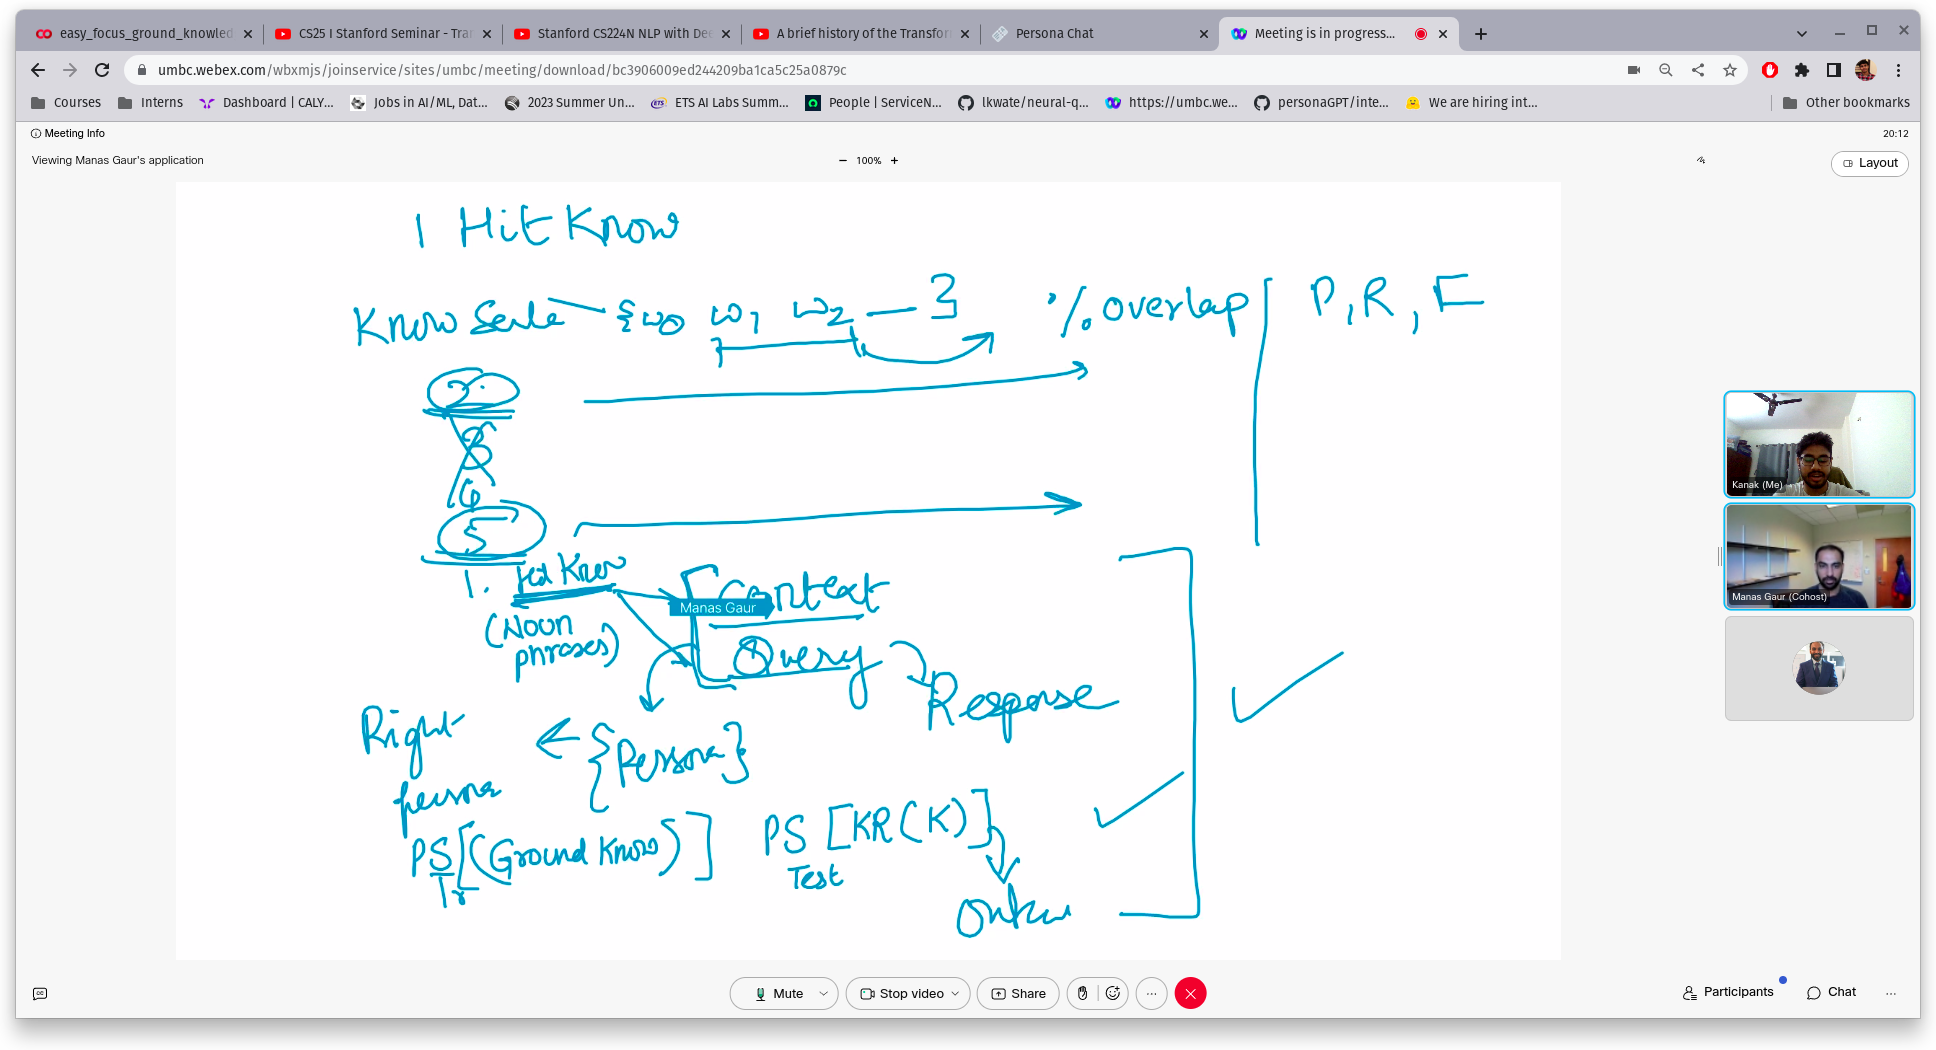 easy_focus_ground_knowled
CS25 I Stanford Seminar - Tra
Stanford CS224N NLP with De
A brief history of the Transfor
Persona Chat
Meeting is in progress...
umbc.webex.com/wbxmjs/joinservice/sites/umbc/meeting/download/bc3906009ed244209ba1ca5c25a0879c
Courses
Interns
Dashboard | CALY...
Jobs in AI/ML, Dat...
2023 Summer Un...
ETS AI Labs Summ...
People | ServiceN...
lkwate/neural-q...
https://umbc.we...
personaGPT/inte...
We are hiring int...
Other bookmarks
Meeting Info
20:12
Viewing Manas Gaur's application
− 100% +
Layout
1 Hit Know
Know {w0 w1 w2 — } % overlap P, R, F
2
8
6
5
1. Hit Know
Context
Manas Gaur
(Noun phrases)
Query
Response
Right persona
{Persona}
PS [(Ground Know)]
Tr
PS [KR(K)]
Test
Kanak (Me)
Manas Gaur (Cohost)
Mute
Stop video
Share
Participants
Chat